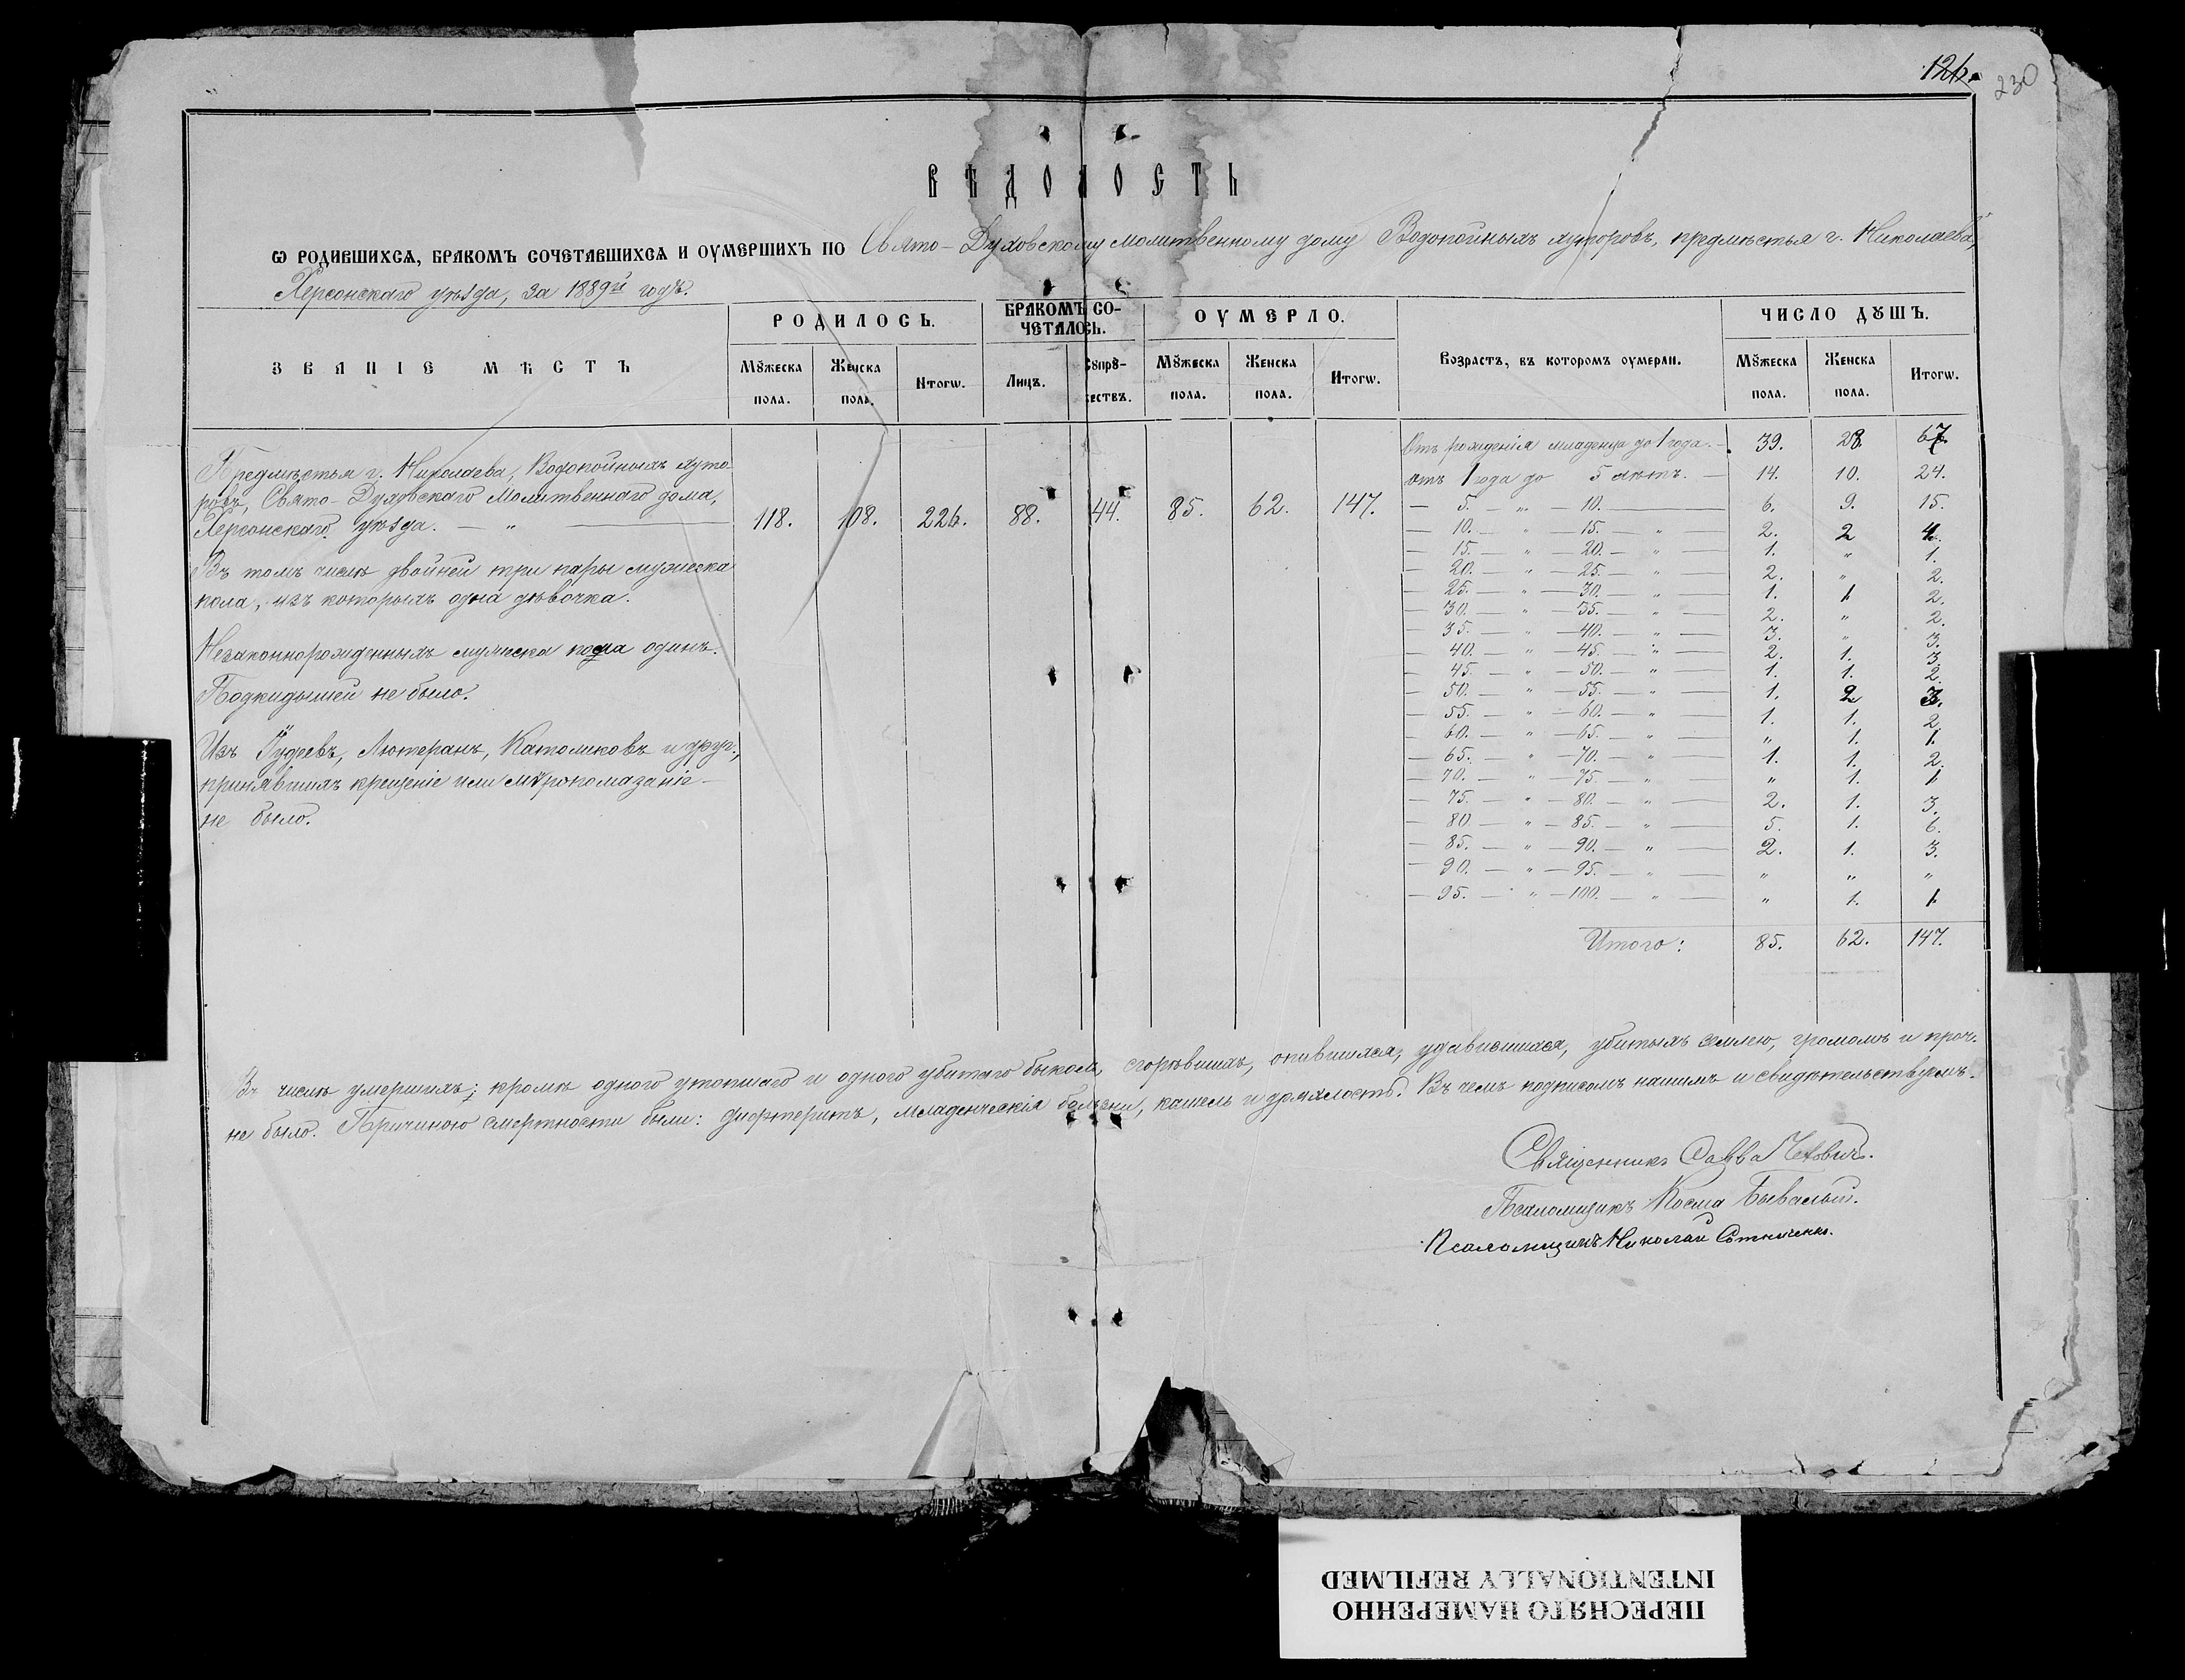 230
ВѢДОМОСТЬ
Ѡ РОДИВШИХСѦ, БРАКОМЪ СОЧЕТАВШИХСѦ И ОУМЕРШИХЪ ПО Свято-Духовскому молитвенному дому Водопойныхъ хуторовъ, предмѣстья г. Николаева,
Херсонскаго уѣзда, за 1889й годъ.
ЗВАНІЕ МѢСТЪ
РОДИЛОСЬ.
БРАКОМЪ СО-
ЧЕТАЛОСЬ.
ОУМЕРЛО.
Возрастъ, въ которомъ оумерли.
ЧИСЛО ДꙊШЪ.
Мꙋжеска пола. Женска пола. Итогѡ. Лицъ. Сꙋпрꙋ-жествъ. Мꙋжеска пола. Женска пола. Итогѡ. Мꙋжеска пола. Женска пола. Итогѡ.
Предмѣстья г. Николаева, Водопойныхъ хуто-
ровъ, Свято-Духовскаго молитвеннаго дома,
Херсонскаго уѣзда. — „ — 118. 108. 226. 88. 44. 85. 62. 147.
Въ томъ числѣ двойней три пары мужеска
пола, изъ которыхъ одна дѣвочка.
Незаконнорожденныхъ мужеска пола одинъ.
Подкидышей не было.
Изъ Іудеевъ, Лютеранъ, Католиковъ и друг.,
принявшихъ крещеніе или мѵропомазаніе
не было.
Отъ рожденія младенца до 1 года. — 39. 28. 67.
отъ 1 года до 5 лѣтъ. — 14. 10. 24.
— 5. — „ — 10. — 6. 9. 15.
— 10. — „ — 15. — „ — 2. 2 4.
— 15. — „ — 20. — „ — 1. „ 1.
— 20. — „ — 25. — „ — 2. „ 2.
— 25. — „ — 30. — „ — 1. 1 2.
— 30. — „ — 35. — „ — 2. „ 2.
— 35. — „ — 40. — „ — 3. „ 3.
— 40. — „ — 45. — „ — 2. 1. 3.
— 45. — „ — 50. — „ — 1. 1. 2.
— 50. — „ — 55. — „ — 1. 2 3.
— 55. — „ — 60. — „ — 1. 1. 2.
— 60. — „ — 65. — „ — „ 1. 1.
— 65. — „ — 70. — „ — 1. 1. 2.
— 70. — „ — 75. — „ — „ 1. 1
— 75. — „ — 80. — „ — 2. 1. 3.
— 80. — „ — 85. — „ — 5. 1. 6.
— 85. — „ — 90. — „ — 2. 1. 3.
— 90. — „ — 95. — „ — „ „ „
— 95. — „ — 100. — „ — „ 1. 1
Итого: 85. 62. 147.
Въ числѣ умершихъ; кромѣ одного утопшаго и одного убитаго быкомъ, сгорѣвшихъ, опившихся, удавившихся, убитыхъ землею, громомъ и проч.
не было. Причиною смертности были: дифтеритъ, младенческія болѣзни, кашель и дряхлость. Въ чемъ подписомъ нашимъ и свидѣтельствуемъ.
Священникъ Савва
Псаломщикъ Косма Бывалый.
Псаломщикъ Николай Сотниченко.
ПЕРЕСНЯТО НАМЕРЕННО
INTENTIONALLY REFILMED